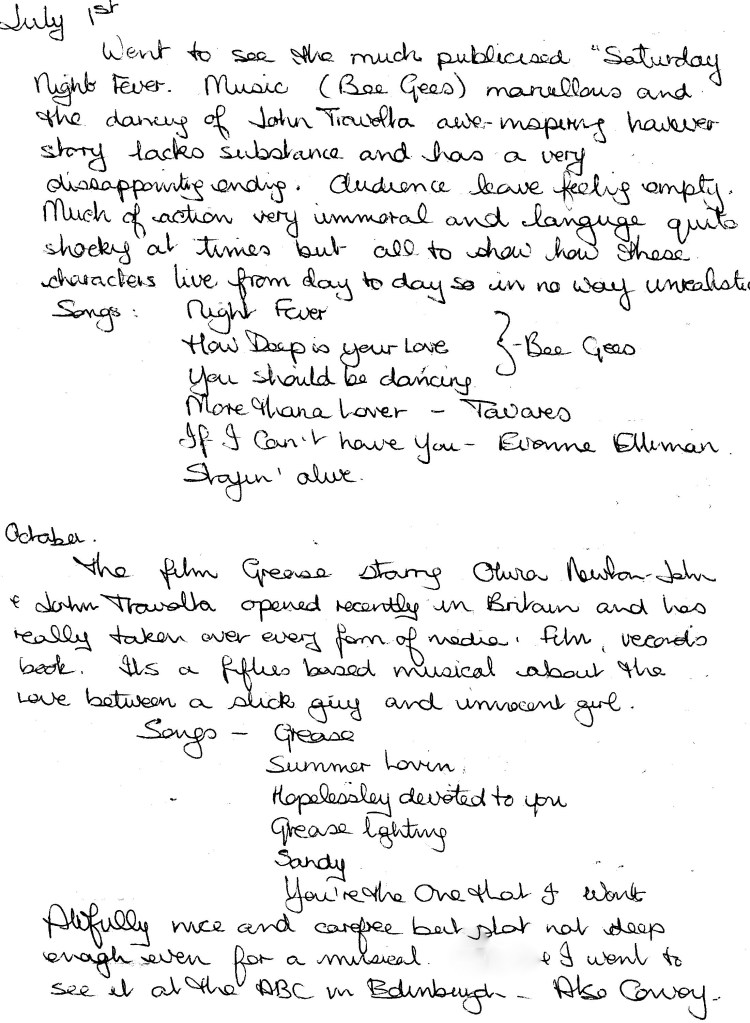 July 1st
Went to see the much publicised "Saturday
Night Fever. Music (Bee Gees) marvellous and
the dancing of John Travolta awe-inspiring however
story lacks substance and has a very
dissappointing ending. Audience leave feeling empty.
Much of action very immoral and languge quite
shocking at times but all to show how these
characters live from day to day so in no way unrealistic
Songs: Night Fever
How Deep is your Love } - Bee Gees
You should be dancing
More than a Lover - Tavares
If I Can't have you - Evonne Elliman.
Stayin' alive.
October.
The film Grease starring Olivia Newton-John
& John Travolta opened recently in Britain and has
really taken over every form of media. film, records
book. Its a fifties based musical about the
love between a slick guy and innocent girl.
Songs - Grease
Summer Lovin
Hopelessley devoted to you
Grease lighting
Sandy
You're the One that I Want
Awfully nice and carefree but plot not deep
enough even for a musical. & I went to
see it at the ABC in Edinburgh - Also Convoy.